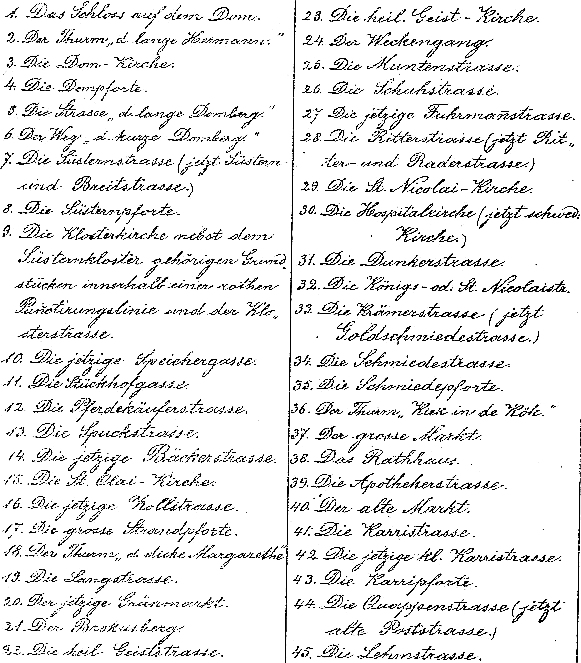 1. Das Schloss auf dem Dom.
2. Der Thurm „d. lange Hermann."
3. Die Dom-Kirche.
4. Die Dompforte.
5. Die Strasse „d. lange Domberg."
6. Der Weg „d. kurze Domberg."
7. Die Süsternstrasse (jetzt Süstern-
und Breitstrasse.)
8. Die Süsternpforte.
9. Die Klosterkirche nebst dem
Süsternkloster gehörigen Grund-
stücken innerhalb einer rothen
Punctirungslinie und der Klo-
sterstrasse.
10. Die jetzige Speichergasse.
11. Die Stückhofgasse.
12. Die Pferdekäuferstrasse.
13. Die Spuckstrasse.
14. Die jetzige Bäckerstrasse.
15. Die St. Olai-Kirche.
16. Die jetzige Kollstrasse.
17. Die grosse Strandpforte.
18. Der Thurm „d. dicke Margarethe"
19. Die Langstrasse.
20. Der jetzige Grünmarkt.
21. Der Brokusberg.
22. Die heil. Geiststrasse.
23. Die heil. Geist-Kirche.
24. Der Weckengang.
25. Die Muntenstrasse.
26. Die Schuhstrasse.
27. Die jetzige Fuhrmanstrasse.
28. Die Ritterstrasse (jetzt Rit-
ter- und Raderstrasse.)
29. Die St. Nicolai-Kirche.
30. Die Hospitalkirche (jetzt schwed.
Kirche.)
31. Die Dunkerstrasse.
32. Die Königs- od. St. Nicolaistr.
33. Die Krämerstrasse (jetzt
Goldschmiedestrasse.)
34. Die Schmiedestrasse.
35. Die Schmiedepforte.
36. Der Thurm „Kiek in de Kök."
37. Der grosse Markt.
38. Das Rathhaus.
39. Die Apothekerstrasse.
40. Der alte Markt.
41. Die Karristrasse.
42. Die jetzige kl. Karristrasse.
43. Die Karripforte.
44. Die Quappenstrasse (jetzt
alte Poststrasse.)
45. Die Lehmstrasse.